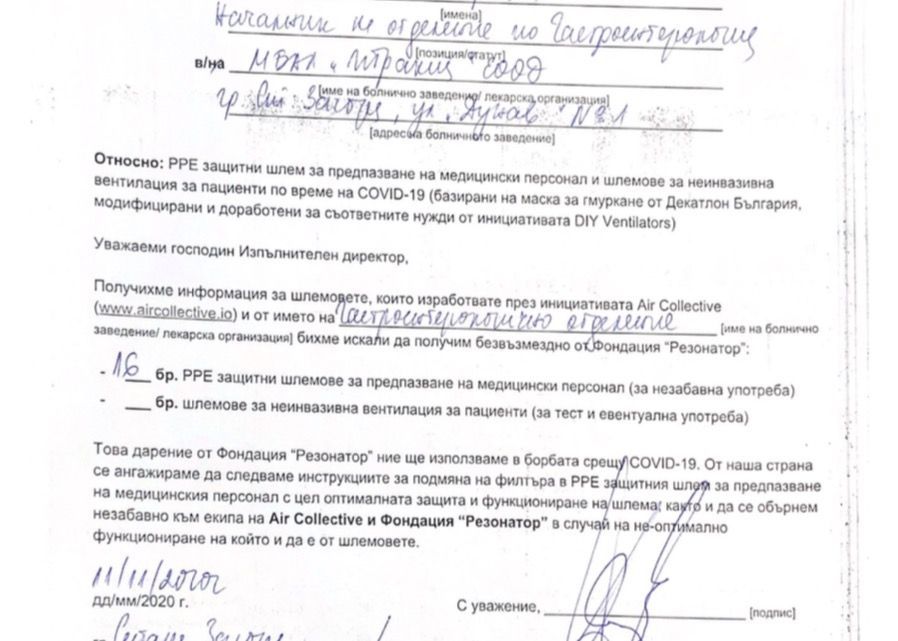 [имена]
Началник на отделение по Гастроентерология
[позиция/статут]
в/на МБАЛ "Тракия" ЕООД
[име на болнично заведение/ лекарска организация]
гр. Ст. Загора, ул. "Дунав" №1
[адрес на болничното заведение]
Относно: PPE защитни шлем за предпазване на медицински персонал и шлемове за неинвазивна
вентилация за пациенти по време на COVID-19 (базирани на маска за гмуркане от Декатлон България,
модифицирани и доработени за съответните нужди от инициативата DIY Ventilators)
Уважаеми господин Изпълнителен директор,
Получихме информация за шлемовете, които изработвате през инициативата Air Collective
(www.aircollective.io) и от името на Гастроентерологично отделение [име на болнично
заведение/ лекарска организация] бихме искали да получим безвъзмездно от Фондация "Резонатор":
- 16 бр. PPE защитни шлемове за предпазване на медицински персонал (за незабавна употреба)
- ___ бр. шлемове за неинвазивна вентилация за пациенти (за тест и евентуална употреба)
Това дарение от Фондация "Резонатор" ние ще използваме в борбата срещу COVID-19. От наша страна
се ангажираме да следваме инструкциите за подмяна на филтъра в PPE защитния шлем за предпазване
на медицинския персонал с цел оптималната защита и функциониране на шлема, както и да се обърнем
незабавно към екипа на Air Collective и Фондация "Резонатор" в случай на не-оптимално
функциониране на който и да е от шлемовете.
11/11/2020
дд/мм/2020 г.
С уважение, [подпис]
Загора